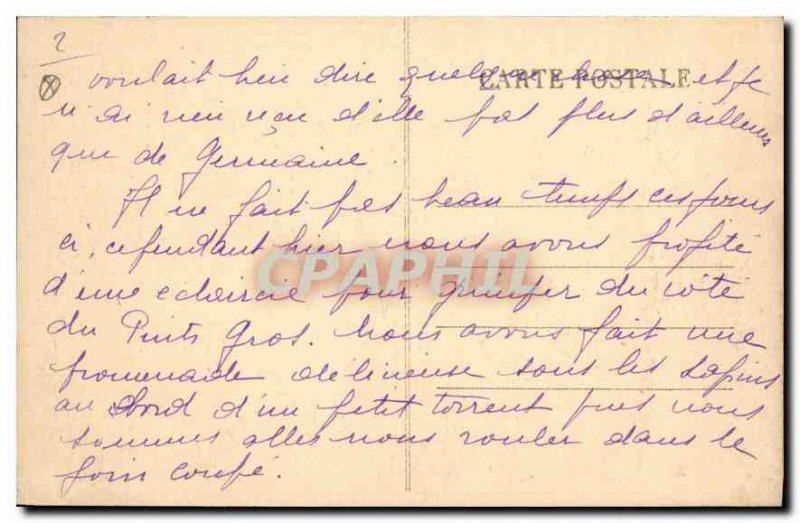 2
CARTE POSTALE
voulait bien dire quelque chose et je
n'ai rien reçu d'elle pas plus d'ailleurs
que de Germaine.
Il ne fait pas beau temps ces jours
ci, cependant hier nous avons profité
d'une eclaircie pour grimper du côté
du Puits Gros. Nous avons fait une
promenade délicieuse sous les sapins
au bord d'un petit torrent puis nous
sommes allés nous rouler dans le
foin coupé.
CPAPHIL